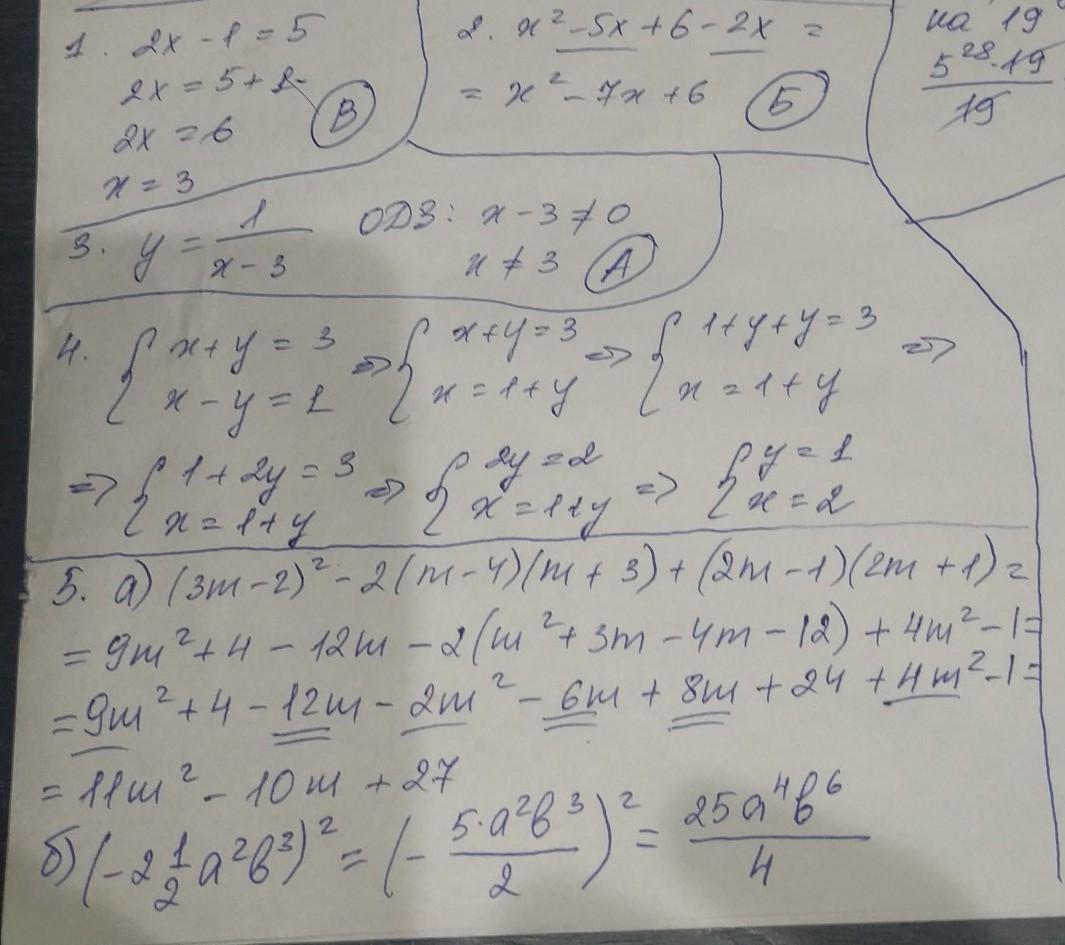 1. 2x - 1 = 5
2x = 5 + 1
2x = 6
x = 3
В
2. x² - 5x + 6 - 2x =
= x² - 7x + 6
Б
на 19
5²⁸·19/19
3. y = 1/(x - 3)
ОДЗ: x - 3 ≠ 0
x ≠ 3
А
4. { x + y = 3; x - y = 1 ⇒ { x + y = 3; x = 1 + y ⇒ { 1 + y + y = 3; x = 1 + y ⇒
⇒ { 1 + 2y = 3; x = 1 + y ⇒ { 2y = 2; x = 1 + y ⇒ { y = 1; x = 2
5. а) (3m - 2)² - 2(m - 4)(m + 3) + (2m - 1)(2m + 1) =
= 9m² + 4 - 12m - 2(m² + 3m - 4m - 12) + 4m² - 1 =
= 9m² + 4 - 12m - 2m² - 6m + 8m + 24 + 4m² - 1 =
= 11m² - 10m + 27
б) (-2 1/2 a²b³)² = (- 5·a²b³/2)² = 25a⁴b⁶/4